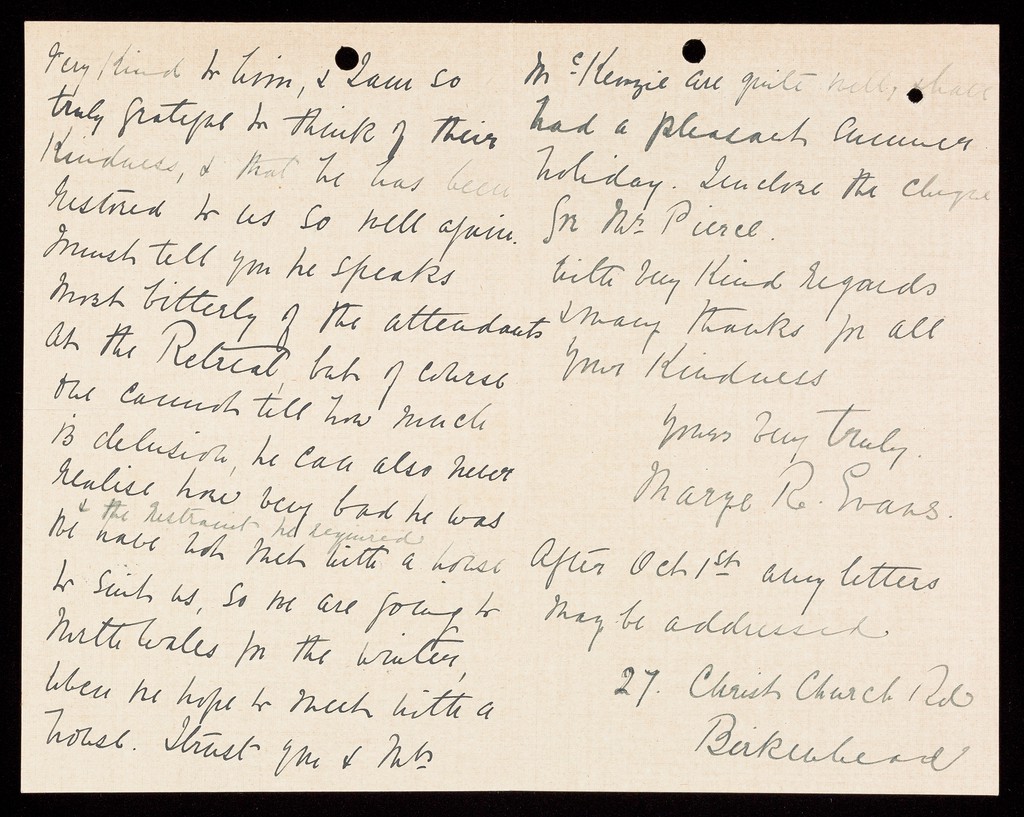 very kind to him, & I am so
truly grateful to think of their
kindness, & that he has been
restored to us so well again.
I must tell you he speaks
most bitterly of the attendants
at the Retreat, but of course
one cannot tell how much
is delusion, he can also never
realise how very bad he was
& the restraint he required
We have not met with a house
to suit us, so we are going to
North Wales for the winter,
when we hope to meet with a
house. I trust you & Mrs
McKenzie are quite well, & have
had a pleasant summer
holiday. I enclose the cheque
for Mr. Pierce.
With very kind regards
& many thanks for all
your kindness
Yours very truly.
Marye R Evans.
After Oct 1st any letters
may be addressed
27. Christ Church Rd
Birkenhead